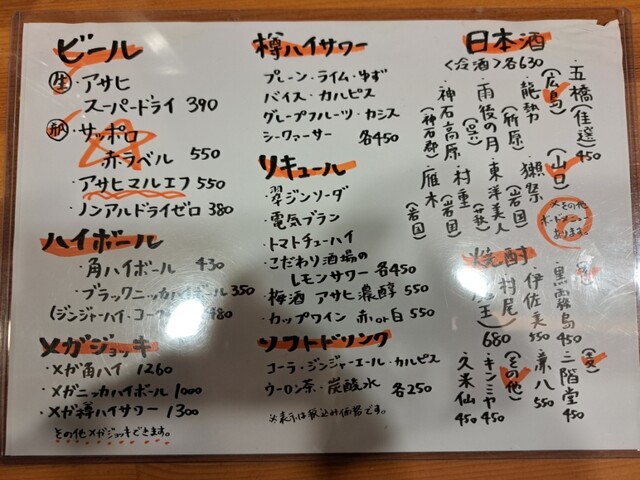 ビール
生・アサヒ
スーパードライ 390
瓶・サッポロ
赤ラベル 550
・アサヒマルエフ 550
・ノンアルドライゼロ 380
ハイボール
・角ハイボール 430
・ブラックニッカハイボール 350
(ジンジャーハイ・コーク 480
メガジョッキ
・メガ角ハイ 1260
・メガニッカハイボール 1000
・メガ樽ハイサワー 1300
その他メガジョッキできます。
樽ハイサワー
プレーン・ライム・ゆず
バイス・カルピス
グレープフルーツ・カシス
シークァーサー 各450
リキュール
・翠ジンソーダ
・電気ブラン
・トマトチューハイ
・こだわり酒場の
レモンサワー 各450
・梅酒 アサヒ濃醇 550
・カップワイン 赤or白 550
ソフトドリンク
コーラ・ジンジャーエール・カルピス
ウーロン茶・炭酸水 各250
※表示は税込み価格です。
日本酒
<冷酒>各630
・五橋(佳選)450
(広島)
・龍勢(竹原)
・雨後の月(呉)
・神石高原(神石郡)
(山口)
・獺祭(岩国)
・東洋美人(萩)
・村重(岩国)
・雁木(岩国)
※その他
ボードメニュー
あります。
焼酎
・黒霧島 450
伊佐美 550
村尾
魔王 680
(麦)
・二階堂 450
・兼八 550
(その他)
・キンミヤ 450
・久米仙 450